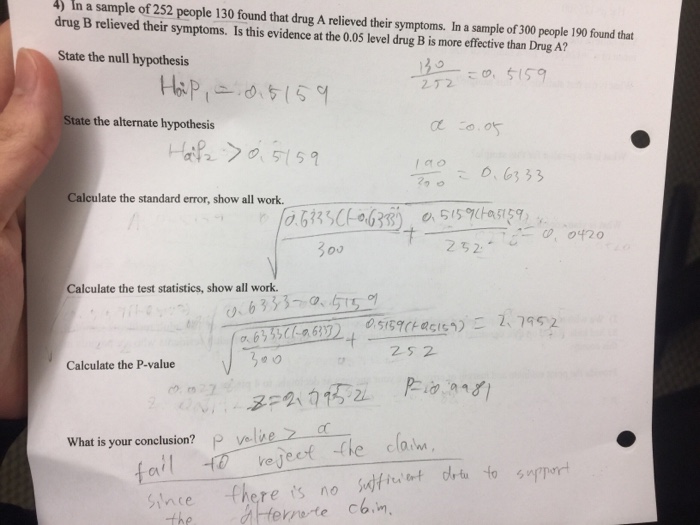 4) In a sample of 252 people 130 found that drug A relieved their symptoms. In a sample of 300 people 190 found that
drug B relieved their symptoms. Is this evidence at the 0.05 level drug B is more effective than Drug A?
State the null hypothesis
130/252 = 0.5159
Ho: P1 = 0.5159
State the alternate hypothesis
α = 0.05
Ha: P2 > 0.5159
190/300 = 0.6333
Calculate the standard error, show all work.
√(0.6333(1-0.6333)/300 + 0.5159(1-0.5159)/252) = 0.0420
Calculate the test statistics, show all work.
0.6333-0.5159
√(0.6333(1-0.6333)/300 + 0.5159(1-0.5159)/252) = 2.7952
Calculate the P-value
Z=2.7952 P=0.9981
What is your conclusion? P value > α
fail to reject the claim,
since there is no sufficient data to support
the alternate claim.